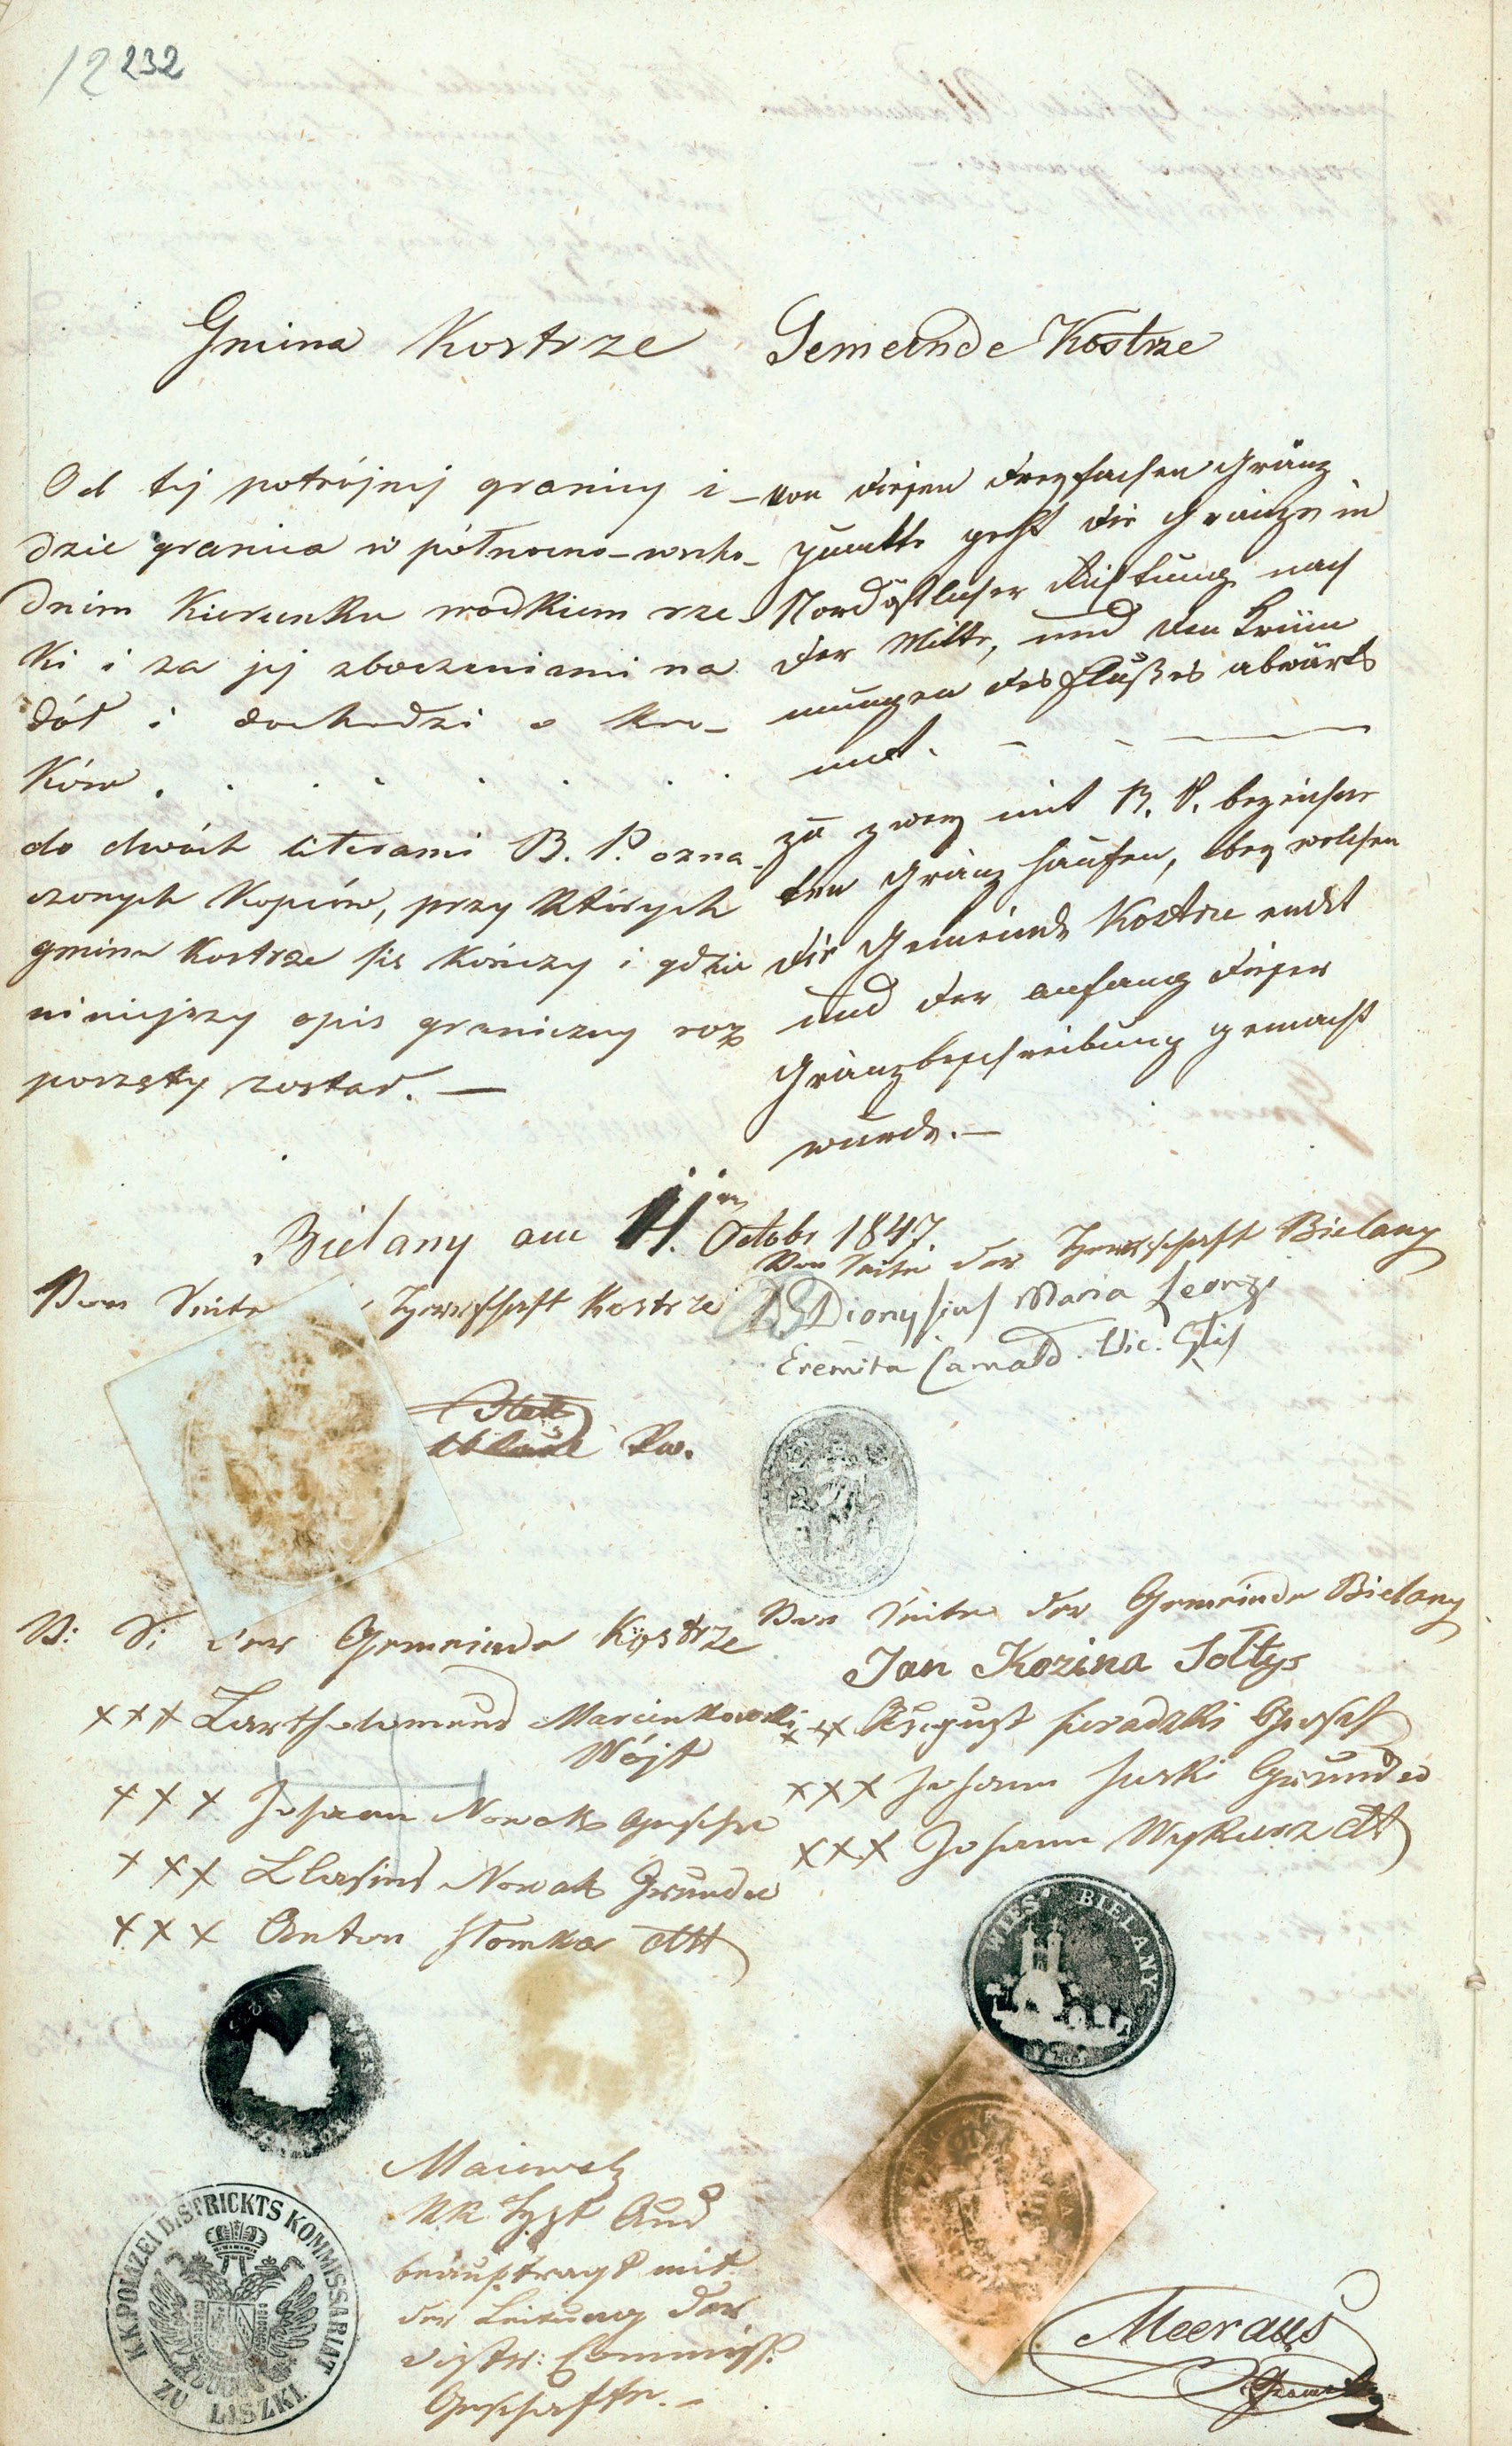 12 232
Gmina Kostrze
Od tej potrójnej granicy i-
dzie granica w północno-wscho-
dnim kierunku środkiem rze-
ki i za jej zboczeniami na
dół i dochodzi o kro-
ków.
do dwóch literami B. P. ozna-
czonych kopców, przy których
gmina Kostrze się kończy i gdzie
niniejszy opis graniczny roz
poczęty został. —
Gemeinde Kostrze
Von diesem dreyfachen Gränz
punkte geht die Gränze in
Nordöstlicher Richtung nach
der Mitte, und den Krüm
mungen des Flußes abwärts
mit.
zu zwey mit B. P. bezeichne
ten Gränz haufen, bey welchen
die Gemeinde Kostrze endet
und der anfang dieser
Gränzbeschreibung gemacht
wurde. —
Bielany am 11. Octobr 1847.
Von Seite Herrschaft Kostrze
Von Seite der Herrschaft Bielany
Dionysius Maria Leony
Eremita Camald. Vic.
V: S: der Gemeinde Kostrze
xxx Bartholomeus Marcinkowski
Wójt
xxx Johann Nowak Geschw
xxx Blasius Nowak Grundw
xxx Anton Słomka dtt
Von Seite der Gemeinde Bielany
Jan Kozina Sołtys
xxx August Sieradzki Gesch
xxx Johann Surki Grundw
xxx Johann Wykurz dtt
WIES BIELANY
K.K. POLIZEI DISTRICKTS KOMMISSARIAT
ZU LISZKI
beauftragt mit
der Leitung der
Distr: Commiss.
Geschäfte. —
Meeraus